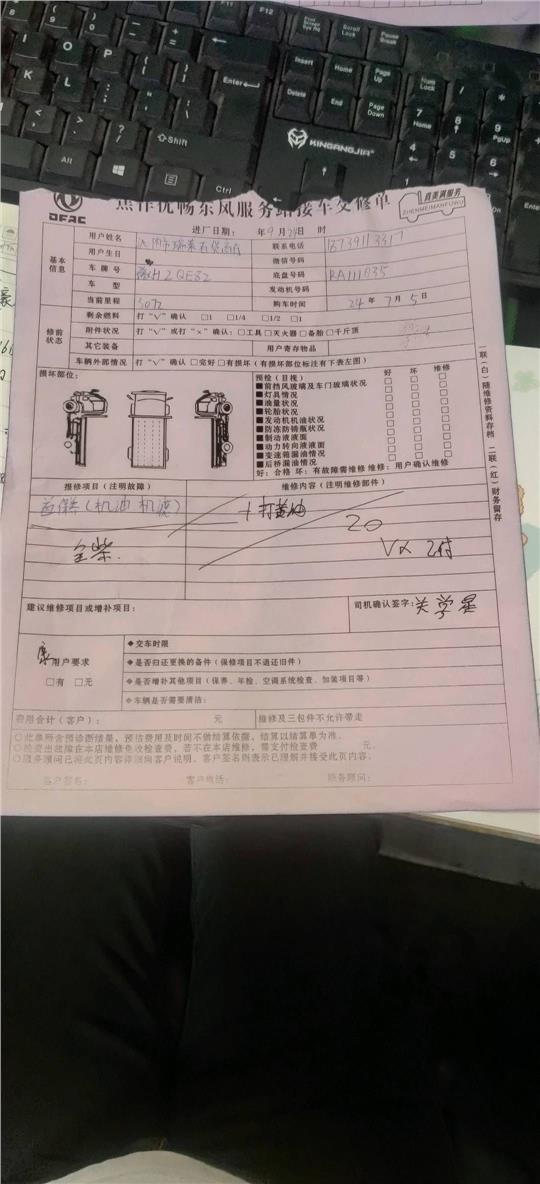 F11
F12
Print Screen SysRq
Scroll Lock
Pause Break
Insert
Home
Page Up
Num Lock
/
*
Delete
End
Page Down
7 Home
8
9 PgUp
4
5
6
I
O
P
K
L
Enter
Shift
Alt
Ctrl
KINGANGJIA
DFAC
焦作优畅东风服务站接车交修单
真美满服务
ZHENMEIMANFUWU
进厂日期: 年9月24日 时
基本信息
用户姓名
联系电话
用户生日
微信号码
车牌号
底盘号码 RA111035
车型
发动机号码
当前里程
购车时间 24年7月5日
修前状态
剩余燃料 打“√”确认 □1 □1/4 □1/2 □1
附件状况 打“√”或打“×”确认: □工具 □灭火器 □备胎 □千斤顶
其它装备
用户寄存物品
车辆外部情况 打“√”确认 □完好 □有损坏 (有损坏部位标注有下表左图)
损坏部位:
预检(目视) 好 坏 维修
■前挡风玻璃及车门玻璃状况 □ □ □
■灯具情况 □ □ □
■油量状况 □ □ □
■轮胎状况 □ □ □
■发动机机油状况 □ □ □
■防冻防锈瓶状况 □ □ □
■制动液液面 □ □ □
■动力转向液液面 □ □ □
■变速箱漏油情况 □ □ □
■后桥漏油情况 □ □ □
好: 合格 坏: 有故障需维修 维修: 用户确认维修
报修项目(注明故障)
维修内容(注明维修部件)
首保(机油 机滤)
+打黄油
20
全柴.
建议维修项目或增补项目:
司机确认签字: 关学星
用户要求
□有 □无
◆交车时限
◆是否归还更换的备件(保修项目不退还旧件)
◆是否增补其他项目(保养、年检、空调系统检查、加装项目等)
◆车辆是否需要清洁:
费用合计(客户): 元
维修及三包件不允许带走
○此单所含预诊断结果, 预估费用及时间不做结算依据, 结算以结算单为准.
○检查出故障在本店维修免收检查费, 若不在本店维修, 需支付检查费 元.
○服务顾问已将此页内容详细向客户说明, 客户签名则表示已理解并接受此页内容.
客户签名: 客户电话: 服务顾问:
一联(白)随维修资料存档 二联(红)财务留存